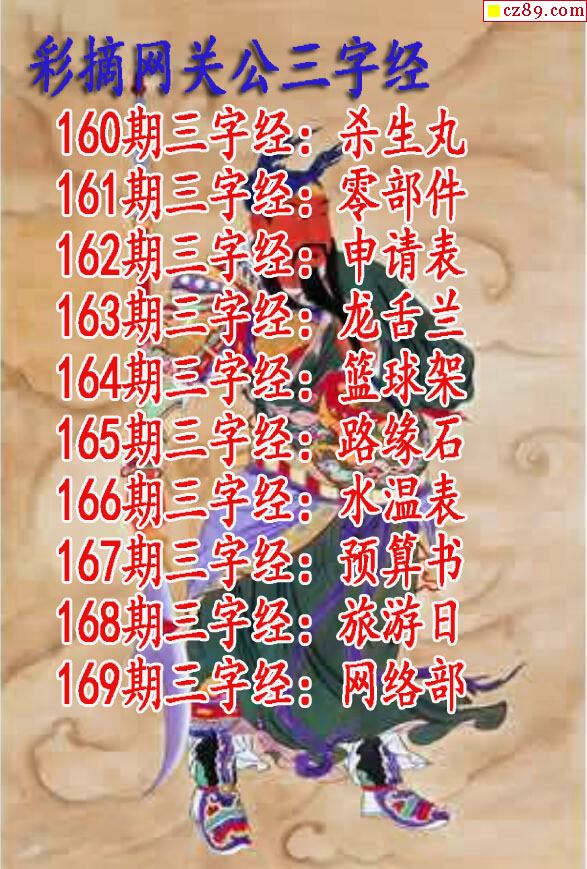 cz89.com
彩摘网关公三字经
160期三字经：杀生丸
161期三字经：零部件
162期三字经：申请表
163期三字经：龙舌兰
164期三字经：篮球架
165期三字经：路缘石
166期三字经：水温表
167期三字经：预算书
168期三字经：旅游日
169期三字经：网络部